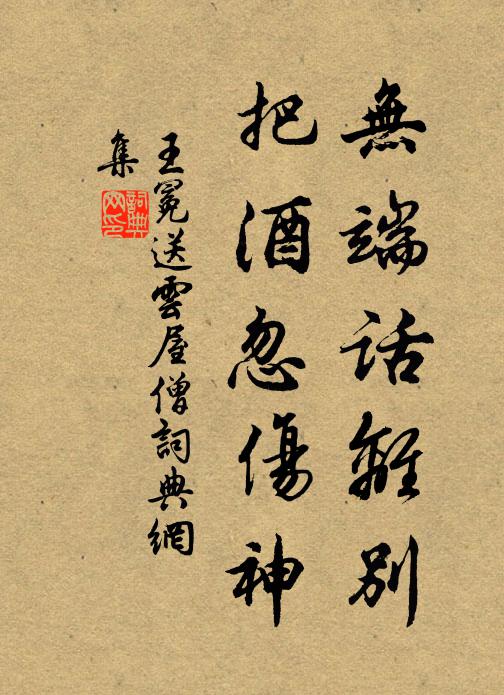 無端話離別
把酒忽傷神
王冕送雲屋僧詞典網
集
詞典
网印